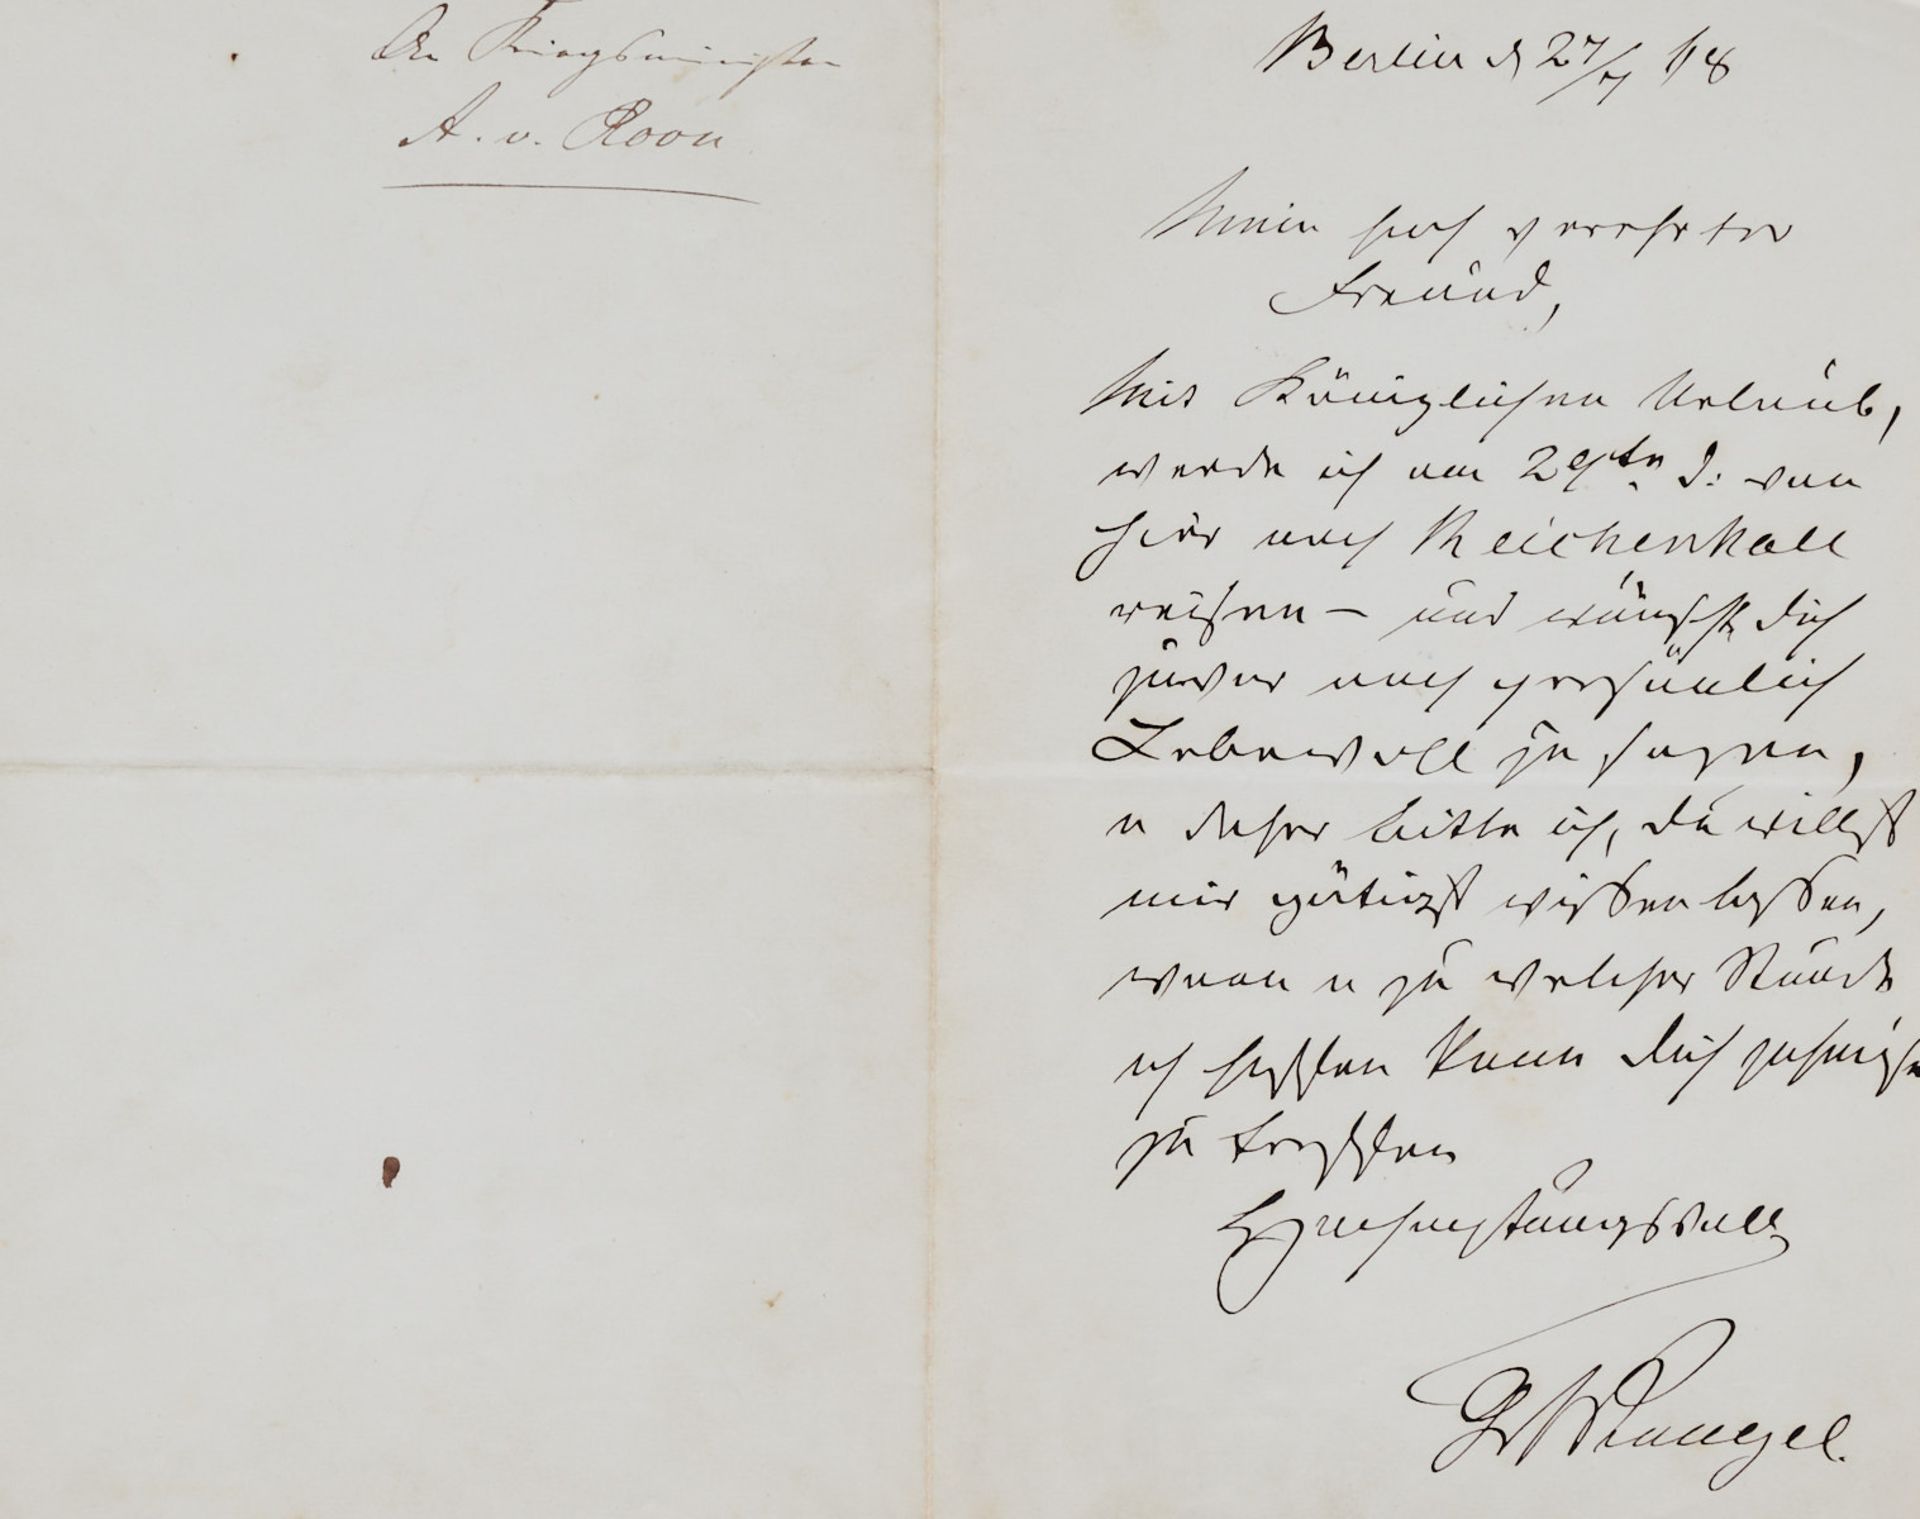 An Kriegsminister
A. v. Roon
Berlin d 27/7 68
Mein hoch verehrter
Freund,
Mit Königlichen Urlaub,
werde ich am 29ten d: von
hier nach Reichenhall
reisen – und wünsche Dich
zuvor noch persönlich
Lebewohl zu sagen,
u daher bitte ich, du willst
mir gütigst wissen lassen,
wann u zu welcher Stunde
ich hoffen kann Dich zuhause
zu treffen
Hochachtungsvoll
Gr Wrangel.